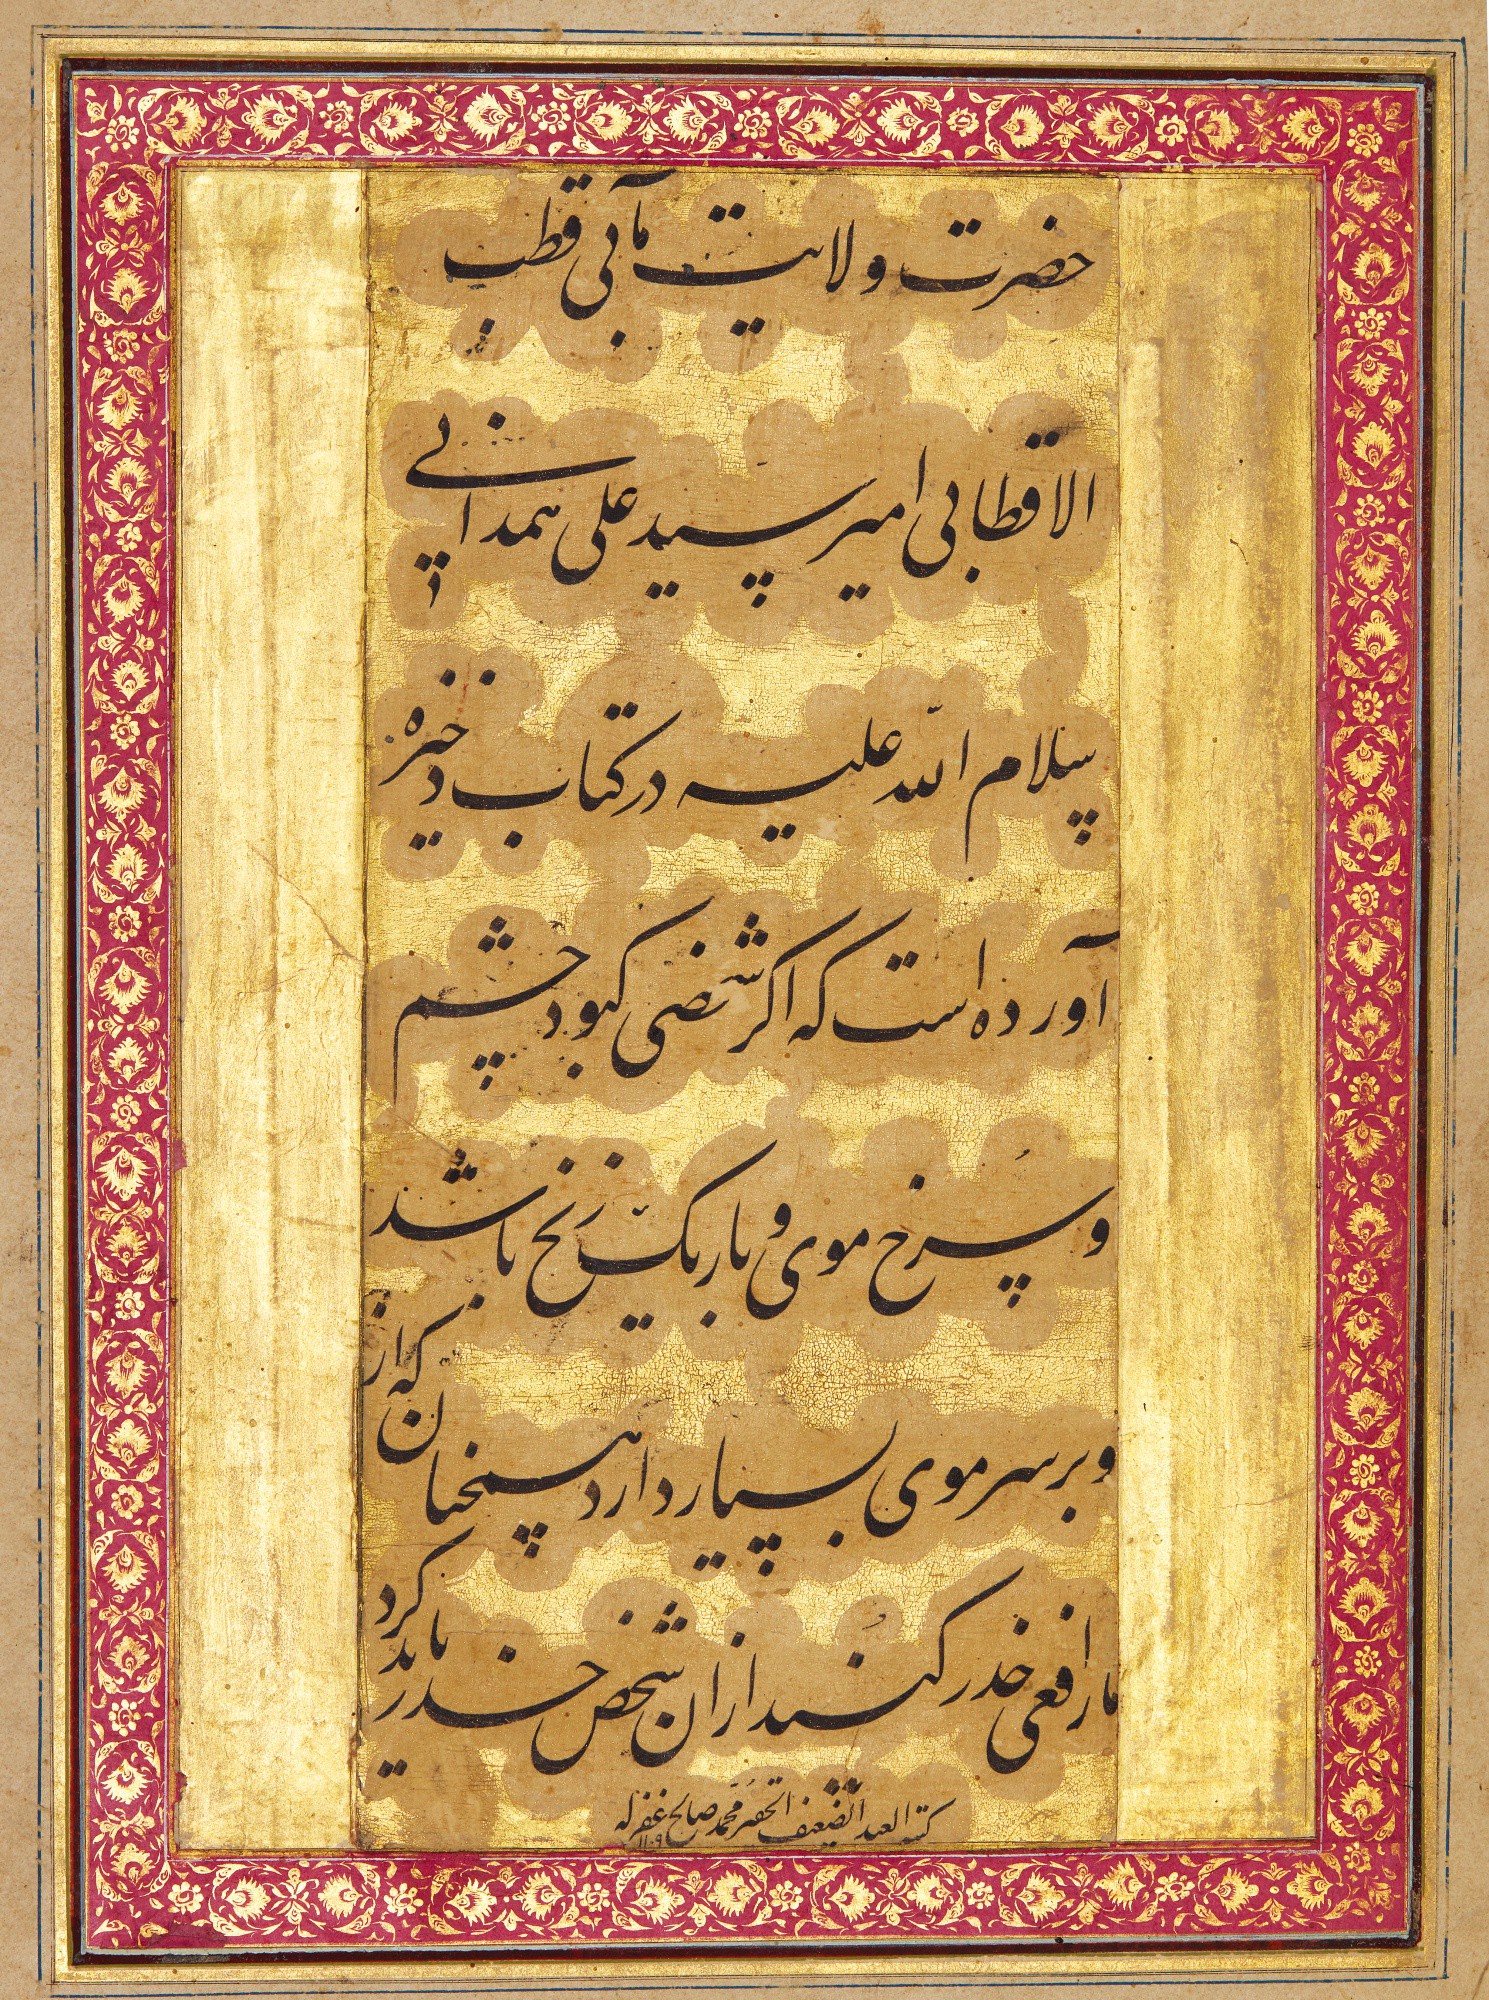 حضرت ولایت مآبی قطب
الاقطابی امیر سید علی همدانی
سلام الله علیه در کتاب ذخیره
آورده است که اکر شخصی کبود چشم
و سرخ موی و باریک زنخ باشد
و بر سر موی بسیار دارد همچنان که از
مار افعی حذر کنند از ان شخص حذر باید کرد
کتبه العبد الضعیف الحقیر محمد صالح غفر له
۱۱۰۹